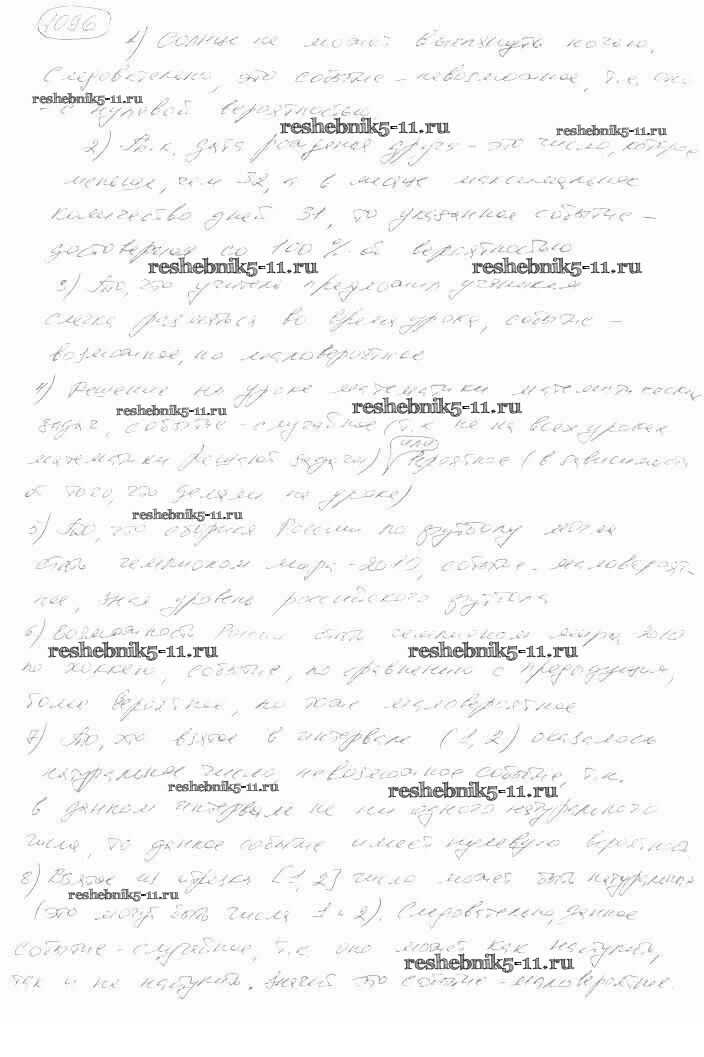 1096
1) Солнце не может выглянуть ночью.
Следовательно, это событие - невозможное, т.е. оно
reshebnik5-11.ru
- с нулевой вероятностью
reshebnik5-11.ru
reshebnik5-11.ru
2) Т.к. дата рождения друга - это число, которое
меньше, чем 32, а в месяце максимальное
количество дней 31, то указанное событие -
достоверное со 100%-й вероятностью
reshebnik5-11.ru
reshebnik5-11.ru
3) То, что учитель предложил ученикам
слегка размяться во время урока, событие -
возможное, но маловероятное
4) Решение на уроке математики математических
reshebnik5-11.ru
reshebnik5-11.ru
задач, событие - случайное (т.к. не на всех уроках
математики решают задачи) или вероятное (в зависимости
от того, что делали на уроке)
reshebnik5-11.ru
5) То, что сборная России по футболу могла
стать чемпионом мира - 2010, событие - маловероят-
ное, зная уровень российского футбола
6) Возможность России стать чемпионом мира 2010
reshebnik5-11.ru
reshebnik5-11.ru
по хоккею, событие, по сравнению с предыдущим,
более вероятное, но тоже маловероятное
7) То, что взятое в интервале (1, 2) оказалось
натуральное число невозможное событие, т.к.
reshebnik5-11.ru
reshebnik5-11.ru
в данном интервале не ни одного натурального
числа, то данное событие имеет нулевую вероятность.
8) Взятое из отрезка [1, 2] число может быть натуральным
reshebnik5-11.ru
(это могут быть числа 1 и 2). Следовательно, данное
событие - случайное, т.к. оно может как наступить,
reshebnik5-11.ru
так и не наступить. Значит это событие - маловероятное.